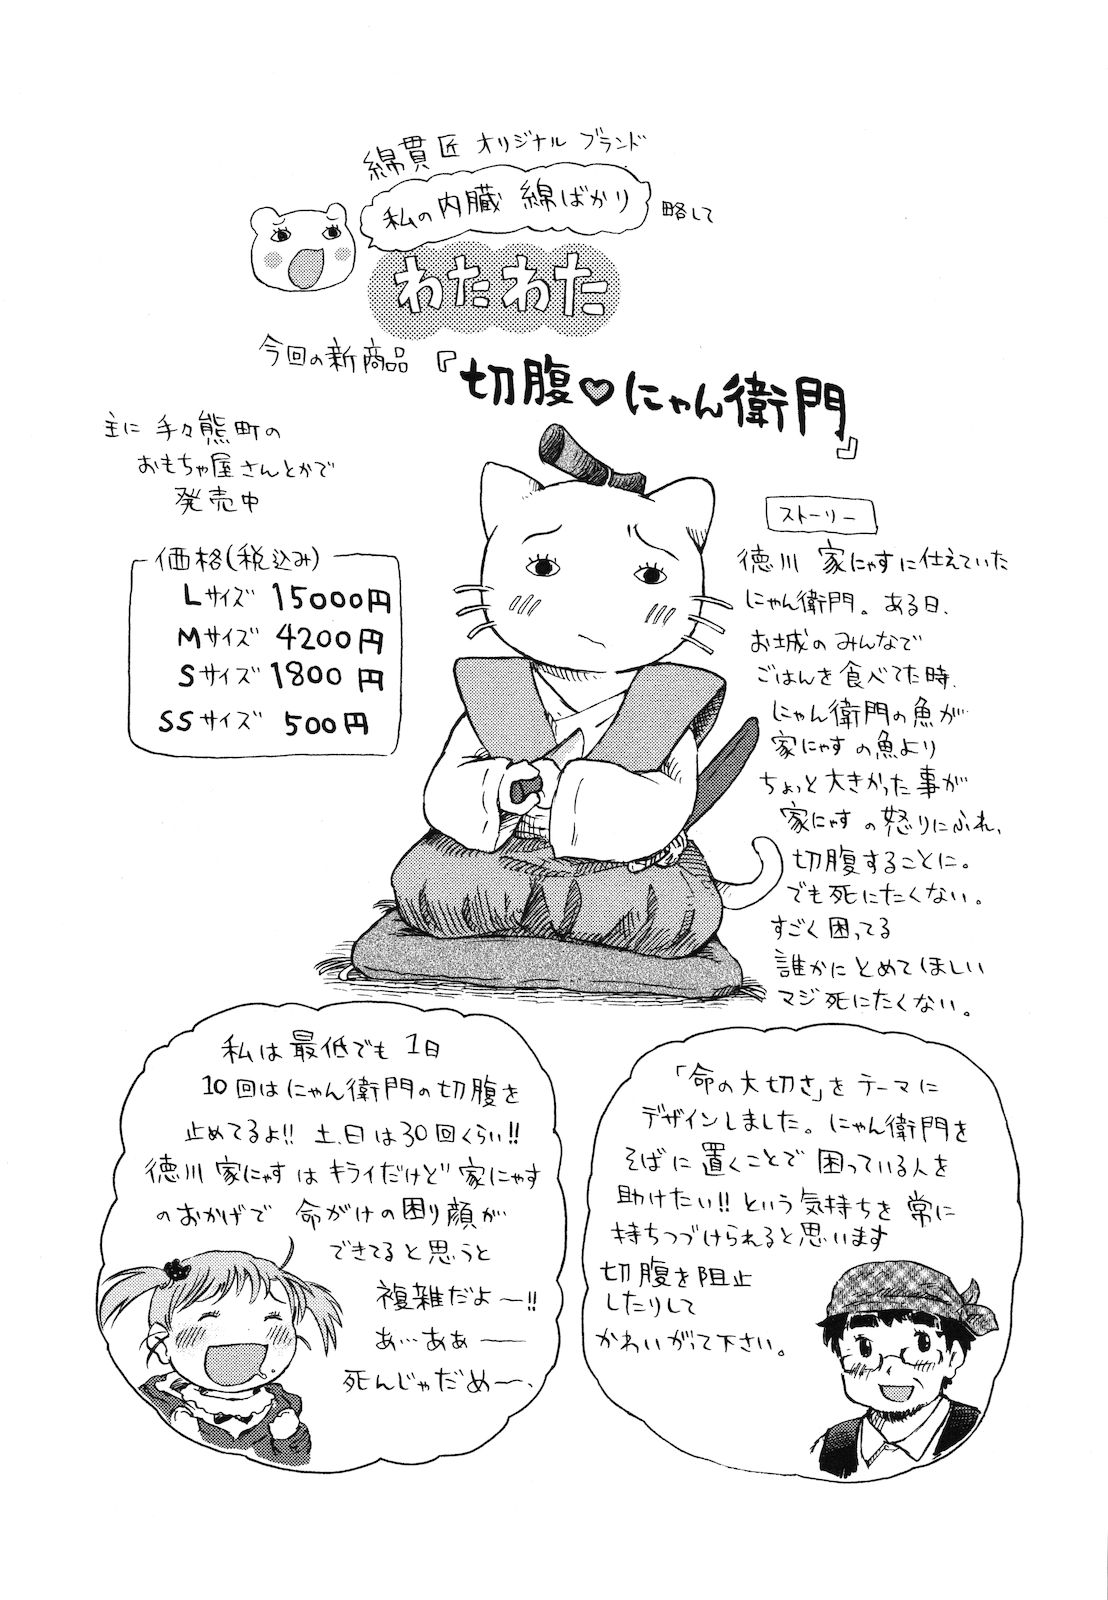 綿貫匠 オリジナル ブランド
私の内臓 綿ばかり
略して
わたわた
今回の新商品
『切腹♡にゃん衛門』
主に 手々熊町の
おもちゃ屋さんとかで
発売中
価格(税込み)
Lサイズ 15000円
Mサイズ 4200円
Sサイズ 1800円
SSサイズ 500円
ストーリー
徳川 家にゃすに仕えていた
にゃん衛門。ある日、
お城のみんなで
ごはんを食べてた時、
にゃん衛門の魚が
家にゃすの魚より
ちょっと大きかった事が
家にゃすの怒りにふれ、
切腹することに。
でも死にたくない。
すごく困ってる
誰かにとめてほしい
マジ死にたくない。
私は最低でも1日
10回はにゃん衛門の切腹を
止めてるよ!! 土、日は30回くらい!!
徳川 家にゃすはキライだけど家にゃす
のおかげで 命がけの困り顔が
できてると思うと
複雑だよ〜!!
あ…ああ——
死んじゃだめ〜、
「命の大切さ」をテーマに
デザインしました。にゃん衛門を
そばに置くことで困っている人を
助けたい!! という気持ちを常に
持ちつづけられると思います
切腹を阻止
したりして
かわいがって下さい。